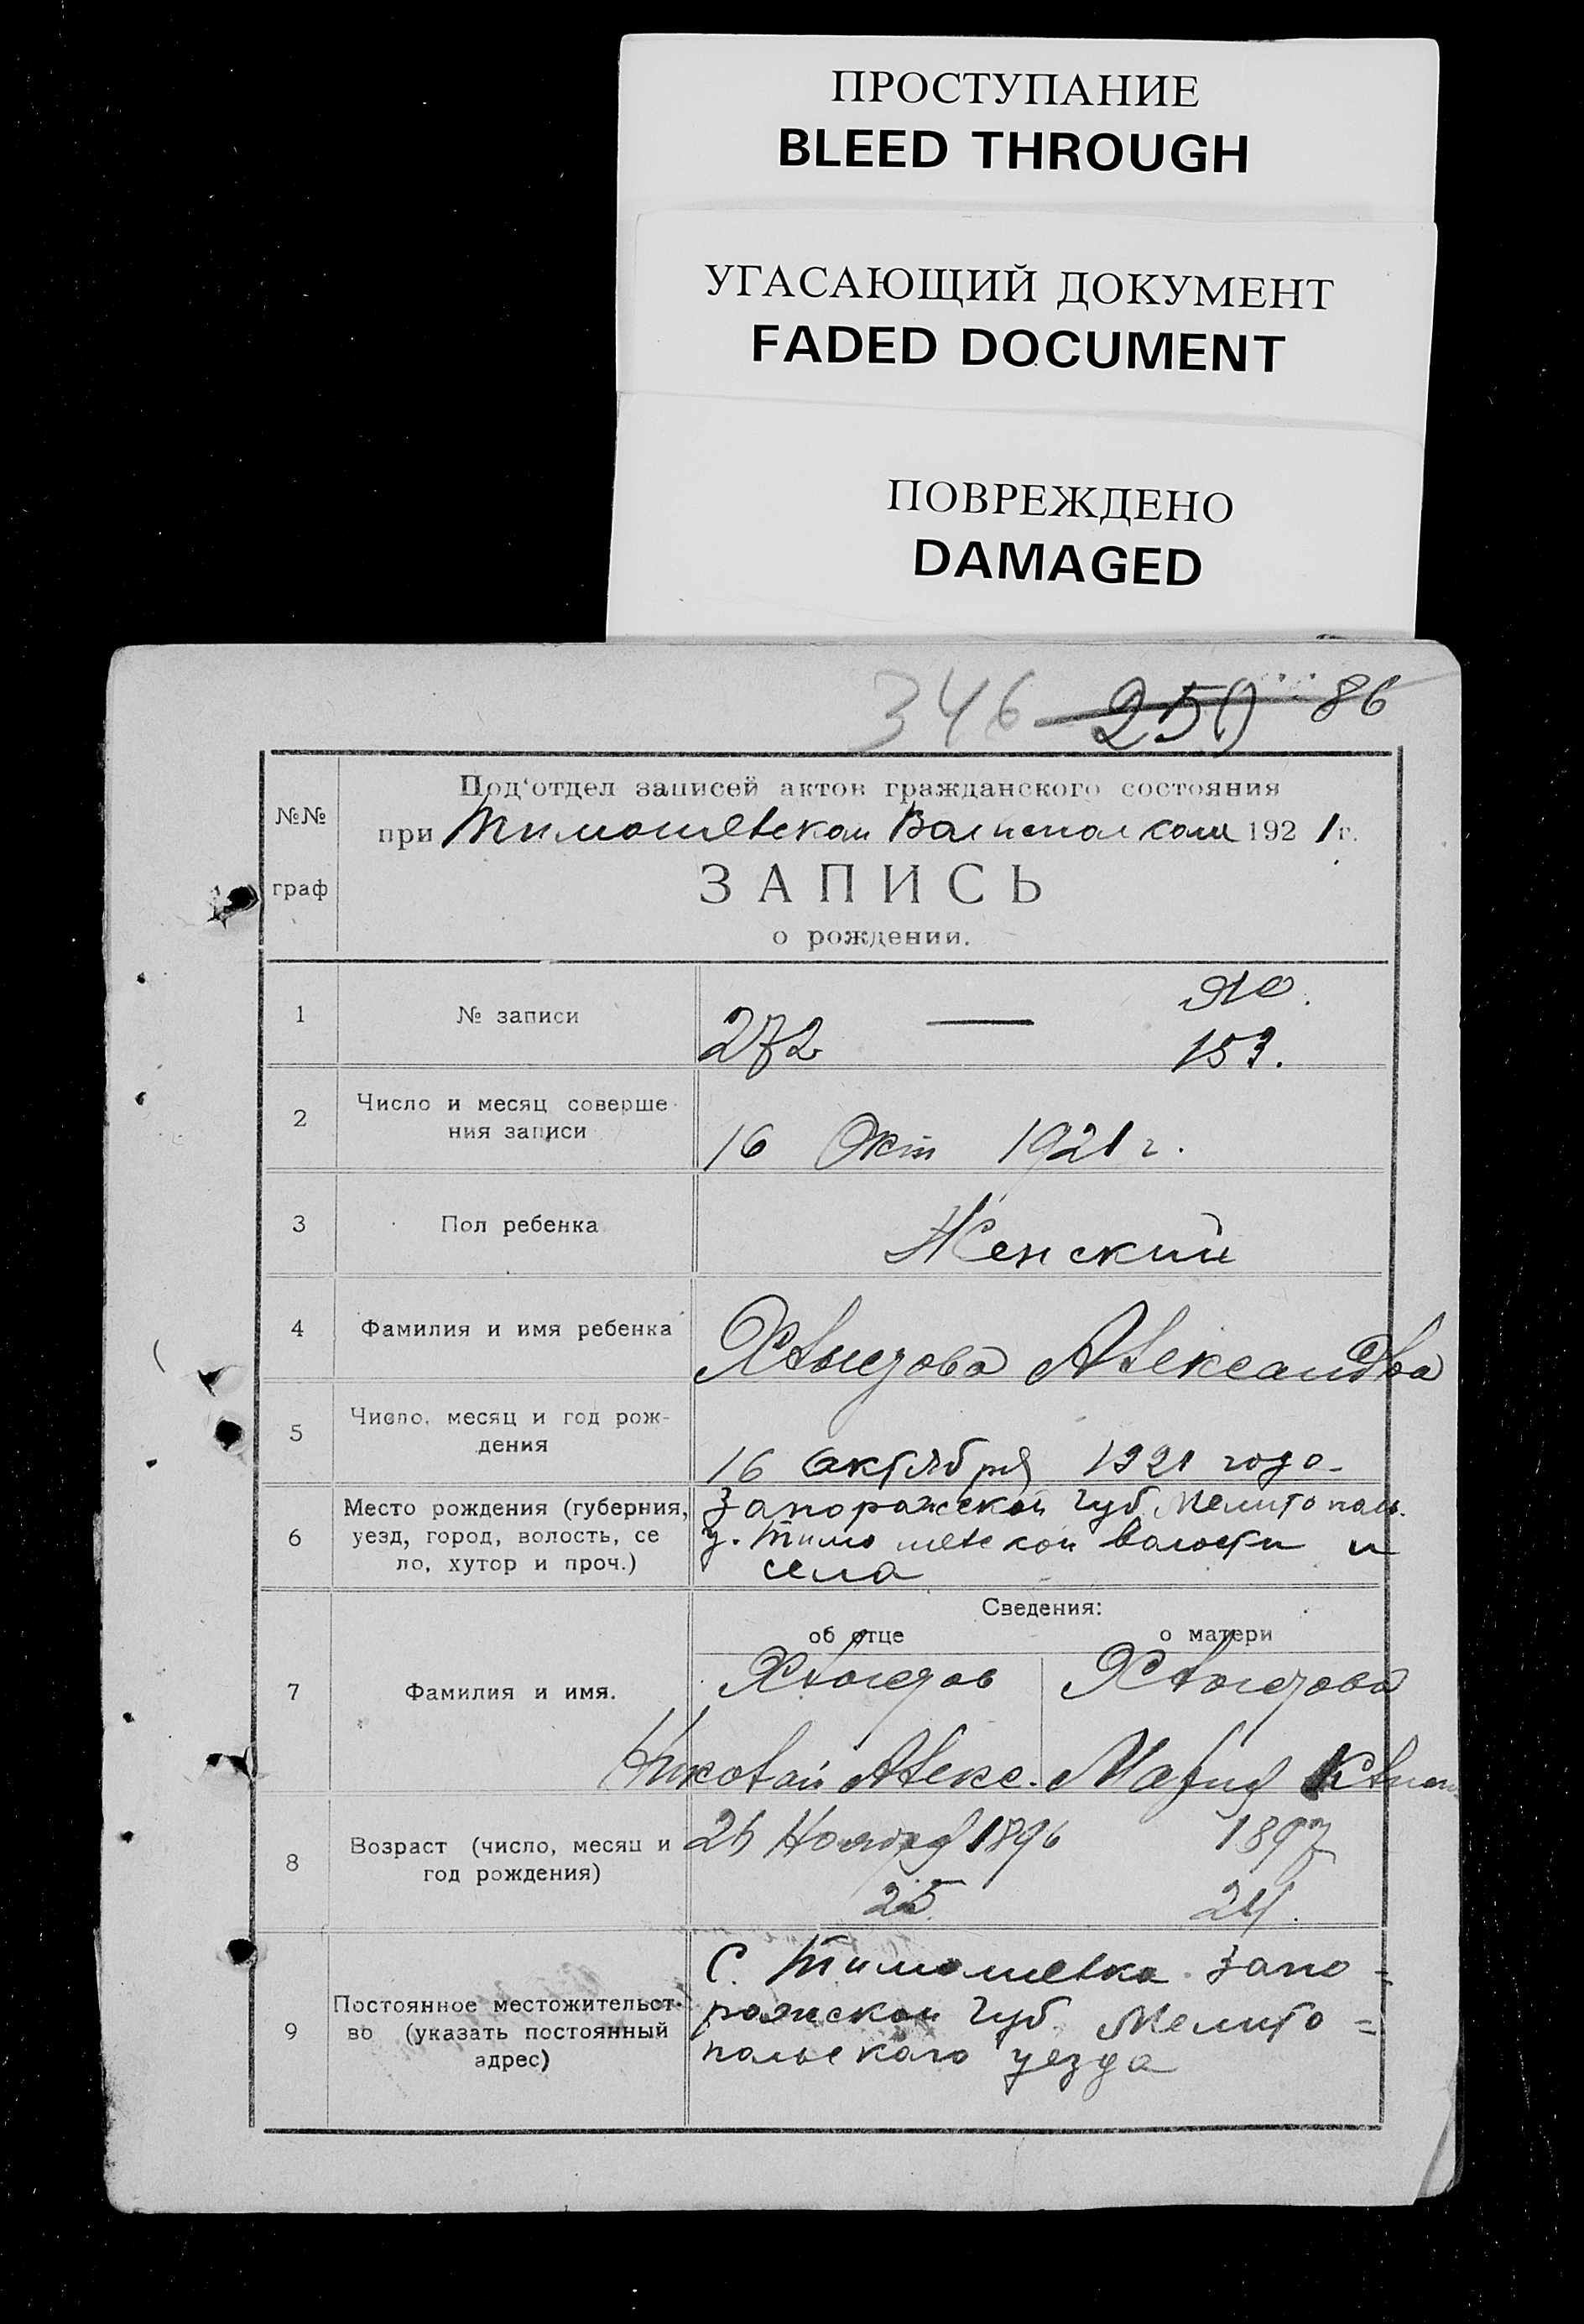 ПРОСТУПАНИЕ
BLEED THROUGH
УГАСАЮЩИЙ ДОКУМЕНТ
FADED DOCUMENT
ПОВРЕЖДЕНО
DAMAGED
346 250 86
№№ граф
Под'отдел записей актов гражданского состояния
при Тимошевском Волисполкоме 1921 г.
ЗАПИСЬ
о рождении.
1 № записи 272 —
153.
2 Число и месяц соверше-
ния записи
16 Окт 1921 г.
3 Пол ребенка Женский
4 Фамилия и имя ребенка Александра
5 Число, месяц и год рож-
дения
16 октября 1921 года
6 Место рождения (губерния,
уезд, город, волость, се
ло, хутор и проч.)
Запорожской губ. Мелитополь.
у. Тимошевской волости и
села
Сведения:
об отце о матери
7 Фамилия и имя.
Николай Алекс. Мария
8 Возраст (число, месяц и
год рождения)
Ноября 1896 1897
25 24.
9 Постоянное местожительст-
во (указать постоянный
адрес)
С. Тимошевка Запо-
рожской губ. Мелито=
польского уезда